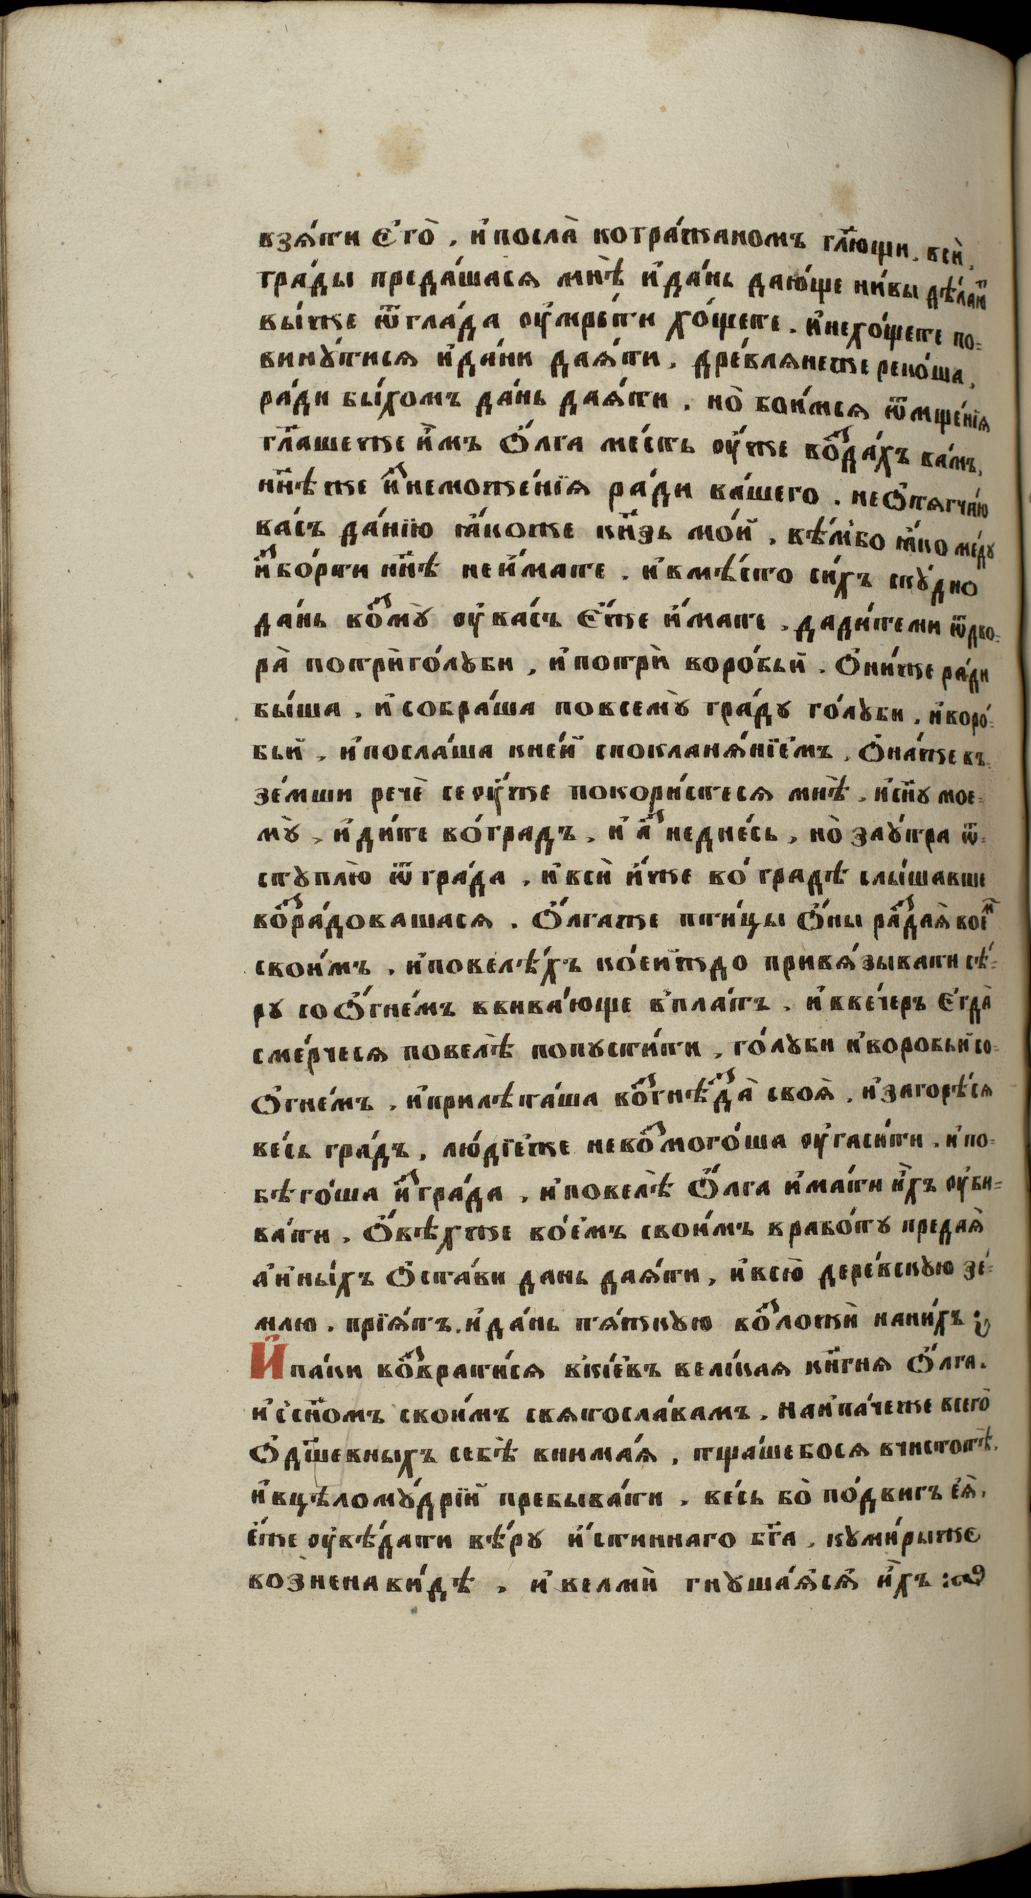 взѧ́ти є҆го̀ , и҆посла̀ когра́жаномъ гл҃ющи . всѝ ,
гра́ды преда́шасѧ мнѣ̀ и҆да́нь даю́ще ни́вы дѣ́лаⷨ
вы́же ѿгла́да ᲂу҆мре́ти хо́щете . и҆нехо́щете по-
вину́тисѧ и҆да́ни даѧ́ти , дре́влѧнеже реко́ша ,
ра́ди бы́хомъ да́нь даѧ́ти . но̀ бои́мсѧ ѿмще́нїѧ
гл҃аше же и҆́мъ Ѻ҆́лга ме́сть ᲂу҆́же воⷥда́хъ ва́мъ ,
нн҃ѣ же иⷥнеможе́нїѧ ра́ди ва́шего . неѻ҆тѧгчѝю
ва́съ да́нїю ꙗ҆́коже кн҃зь мо́й , вѣ́мбо ꙗ҆́ко ме́ду
иⷥбо́рти нн҃ѣ неи҆́мате . и҆вмѣ́сто си́хъ ску́дно
да́нь воⷥмꙋ̀ ᲂу҆ва́съ є҆́же и҆́мате , дади́теми ѿдво-
ра̀ потри̏го́луби , и҆потри̏ воро́бьй . Ѻ҆ни́же ра́ди
бы́ша , и҆собра́ша повсемꙋ̀ гра́ду го́луби , и҆воро́-
бьй , и҆посла́ша кне́й споклонѧ́нїемъ , Ѻ҆на́же въ-
зе́мши рече̏ се ᲂу҆́же покори́стесѧ мнѣ̀ , и҆сн҃у мое-
мꙋ̀ , и҆ди́те во́градъ , и҆ аⷥ недне́сь , но̀ зау́тра ѿ-
ступлю̀ ѿ гра́да , и҆всѝ и҆́же во́ градѣ слы́шавше
воⷥра́довашасѧ . Ѻ҆́лгаже пти́цы Ѻ҆́ны раⷥдаѧ̀ воⷨ
свои́мъ , и҆повелѣ́хъ ко́еи҆ждо привѧ́зывати сѣ́-
ру соѺ҆гне́мъ ввива́юще в҆пла́тъ , и҆ввече́ръ є҆гда̀
сме́рчесѧ повелѣ̀ попусти́ти , го́луби и҆воробьи̏ со-
Ѻ҆гне́мъ , и҆прилѣта́ша воⷥгнѣⷥда̀ своѧ̀ , и҆загорѣ́сѧ
ве́сь гра́дъ , лю́дїеже невоⷥмого́ша ᲂу҆гаси́ти . и҆по-
бѣго́ша иⷥгра́да , и҆повелѣ̀ Ѻ҆́лга и҆ма́ти и҆́хъ ᲂу҆би-
ва́ти . Ѻ҆́вѣхже во́емъ свои́мъ врабо́ту предаѧ̀
а҆и҆ны́хъ Ѻ҆ста́ви дань даѧ́ти , и҆всю̀ дере́вскую зе́-
млю . прїѧ́тъ . и҆да́нь тѧ́жкую воⷥложи̏ нани́хъ :
И҆па́ки воⷥврати́сѧ вкі́евъ вели́каѧ кн҃гнѧ Ѻ҆́лга .
и҆ сн҃омъ свои́мъ свѧтосла́вамъ . наи҆па́чеже всего̀
Ѻ҆дш҃евныхъ себѣ̀ внима́ѧ , тща́шебосѧ вчистотѣ̀ ,
и҆вцѣлому́дрїй пребыва́ти . ве́сь бо̀ по́двигъ є҆ѧ̀ ,
є҆́же ᲂу҆вѣ́дати вѣ́ру и҆́стиннаго бг҃а , куми́рыже
возненави́дѣ , и҆ велми̏ гнуша́ѧсѧ и҆́хъ :